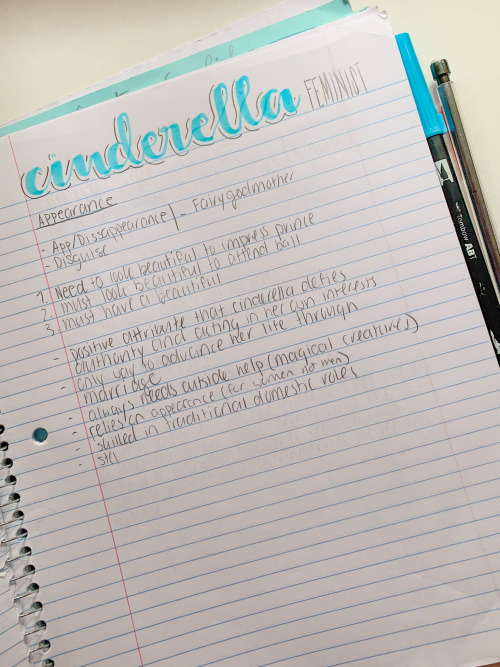 cinderella FEMINIST
Appearance
- App/Dissappearance | - Fairygodmother
- Disguise
1. Need to look beautiful to impress prince
2. must look beautiful to attend ball
3. must have a beautiful
- positive attribute that cinderella defies
authority and acting in her own interests
- only way to advance her life through
marriage
- always needs outside help (magical creatures)
- relies on appearance (for women not men)
- skilled in traditional domestic roles
- stel
Tombow ABT